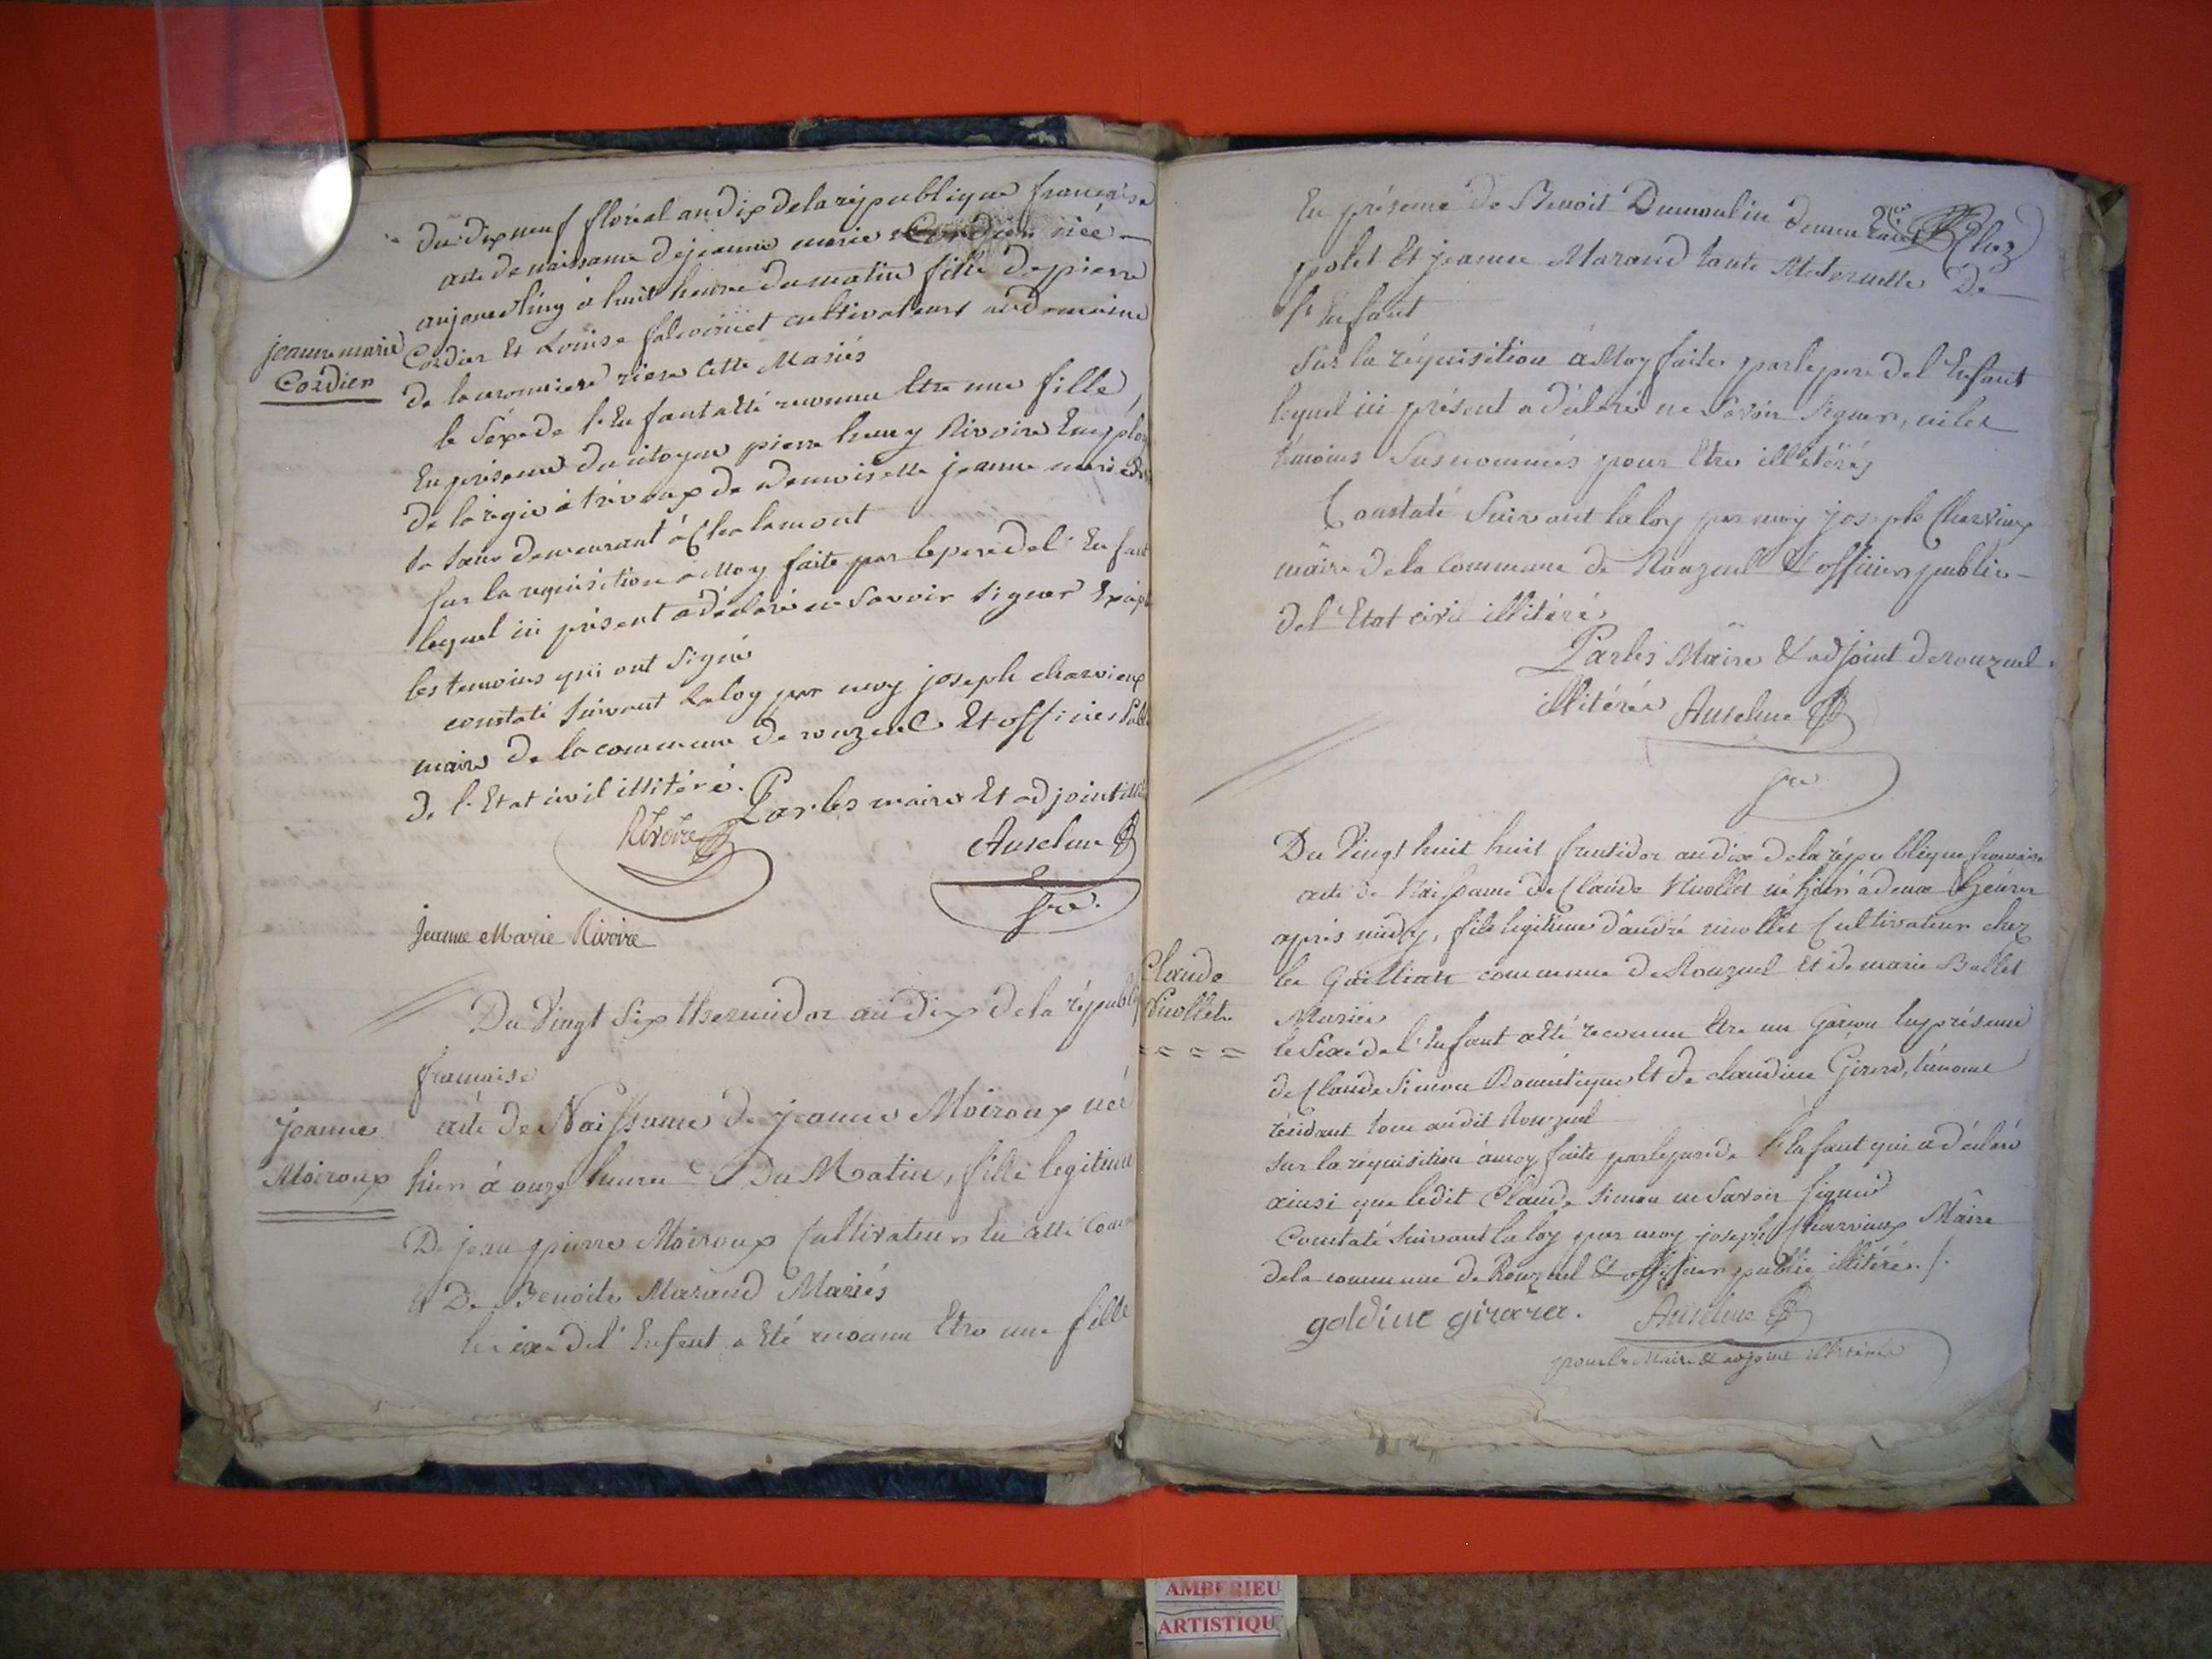 du dix neuf floréal an dix de la république française
acte de naissance de jeanne marie Cordier née
aujourd'huy à huit heure du matin fille de pierre
jeanne marie
Cordier
Cordier Et Louise cultivateurs au domaine
de la riere cette Mariés
le Séxe de l'Enfant atté reconnu Etre une fille,
En présence du citoyen pierre henry Rivoire Emplo
de la régie à trévoux de demoiselle jeanne marie
Sa Sœur demeurant à Chalamont
Sur la requisition à Moy faite par le pere de l'Enfant
lequel ici présent a déclaré ne Savoir Signer Excep
les temoins qui ont Signé
constaté Suivant La loy par moy joseph charvieux
maire de la commune de ronzuel Et officier Publ
de l'Etat civil illitéré.
Par les maire Et adjoint illi
Rivoire
Anselme
Jeanne Marie Rivoire
Du Vingt Six thermidor an dix de la républ
francaise
jeanne
Moiroux
acte de Naissance de jeanne Moiroux née
hier à onze heures du Matin, fille legitime
De jean pierre Moiroux Cultivateur En cette Com
Et De Benoite Marand Mariés
le sexe de l'Enfent a Eté reconnu Etre une fille
En présence De Benoit Dumoulin demeurant Chez
polet Et jeanne Marand tante Maternelle De
l'Enfant
Sur la réquisition à Moy faite par le pere de l'Enfant
lequel ici présent a déclaré ne Savoir Signer, ni les
témoins Susnommés pour Etre illitérés
Constaté Suivant la loy par moy joseph Charvieux
maire de la Commune de Ronzuel & officier public
de l'Etat civil illitéré
Par les Maire & adjoint de ronzuel
illitérés Anselme
Du Vingt huit huit fructidor an dix de la république francaise
acte de Naissance de Claude Nicollet né hier à deux heures
après midy, fils legitime d'andré nicollet Cultivateur chez
Claude
Nicollet
les Gailliard commune de Ronzuel Et de marie Bullet
Mariés
le Sexe de l'Enfant atté reconnu Etre un Garçon En présence
de Claude Simon Domestique Et de claudine Girard, témoins
résidant tous audit Ronzuel
Sur la réquisition à moy faite par le pere de l'Enfant qui a déclaré
ainsi que ledit Claude Simon ne Savoir Signer
Constaté Suivant la loy par moy joseph Charvieux Maire
de la commune de Ronzuel & officier public illitéré./.
goldine girarer. Anselme
pour le Maire & adjoint illitérés
AMBERIEU
ARTISTIQU